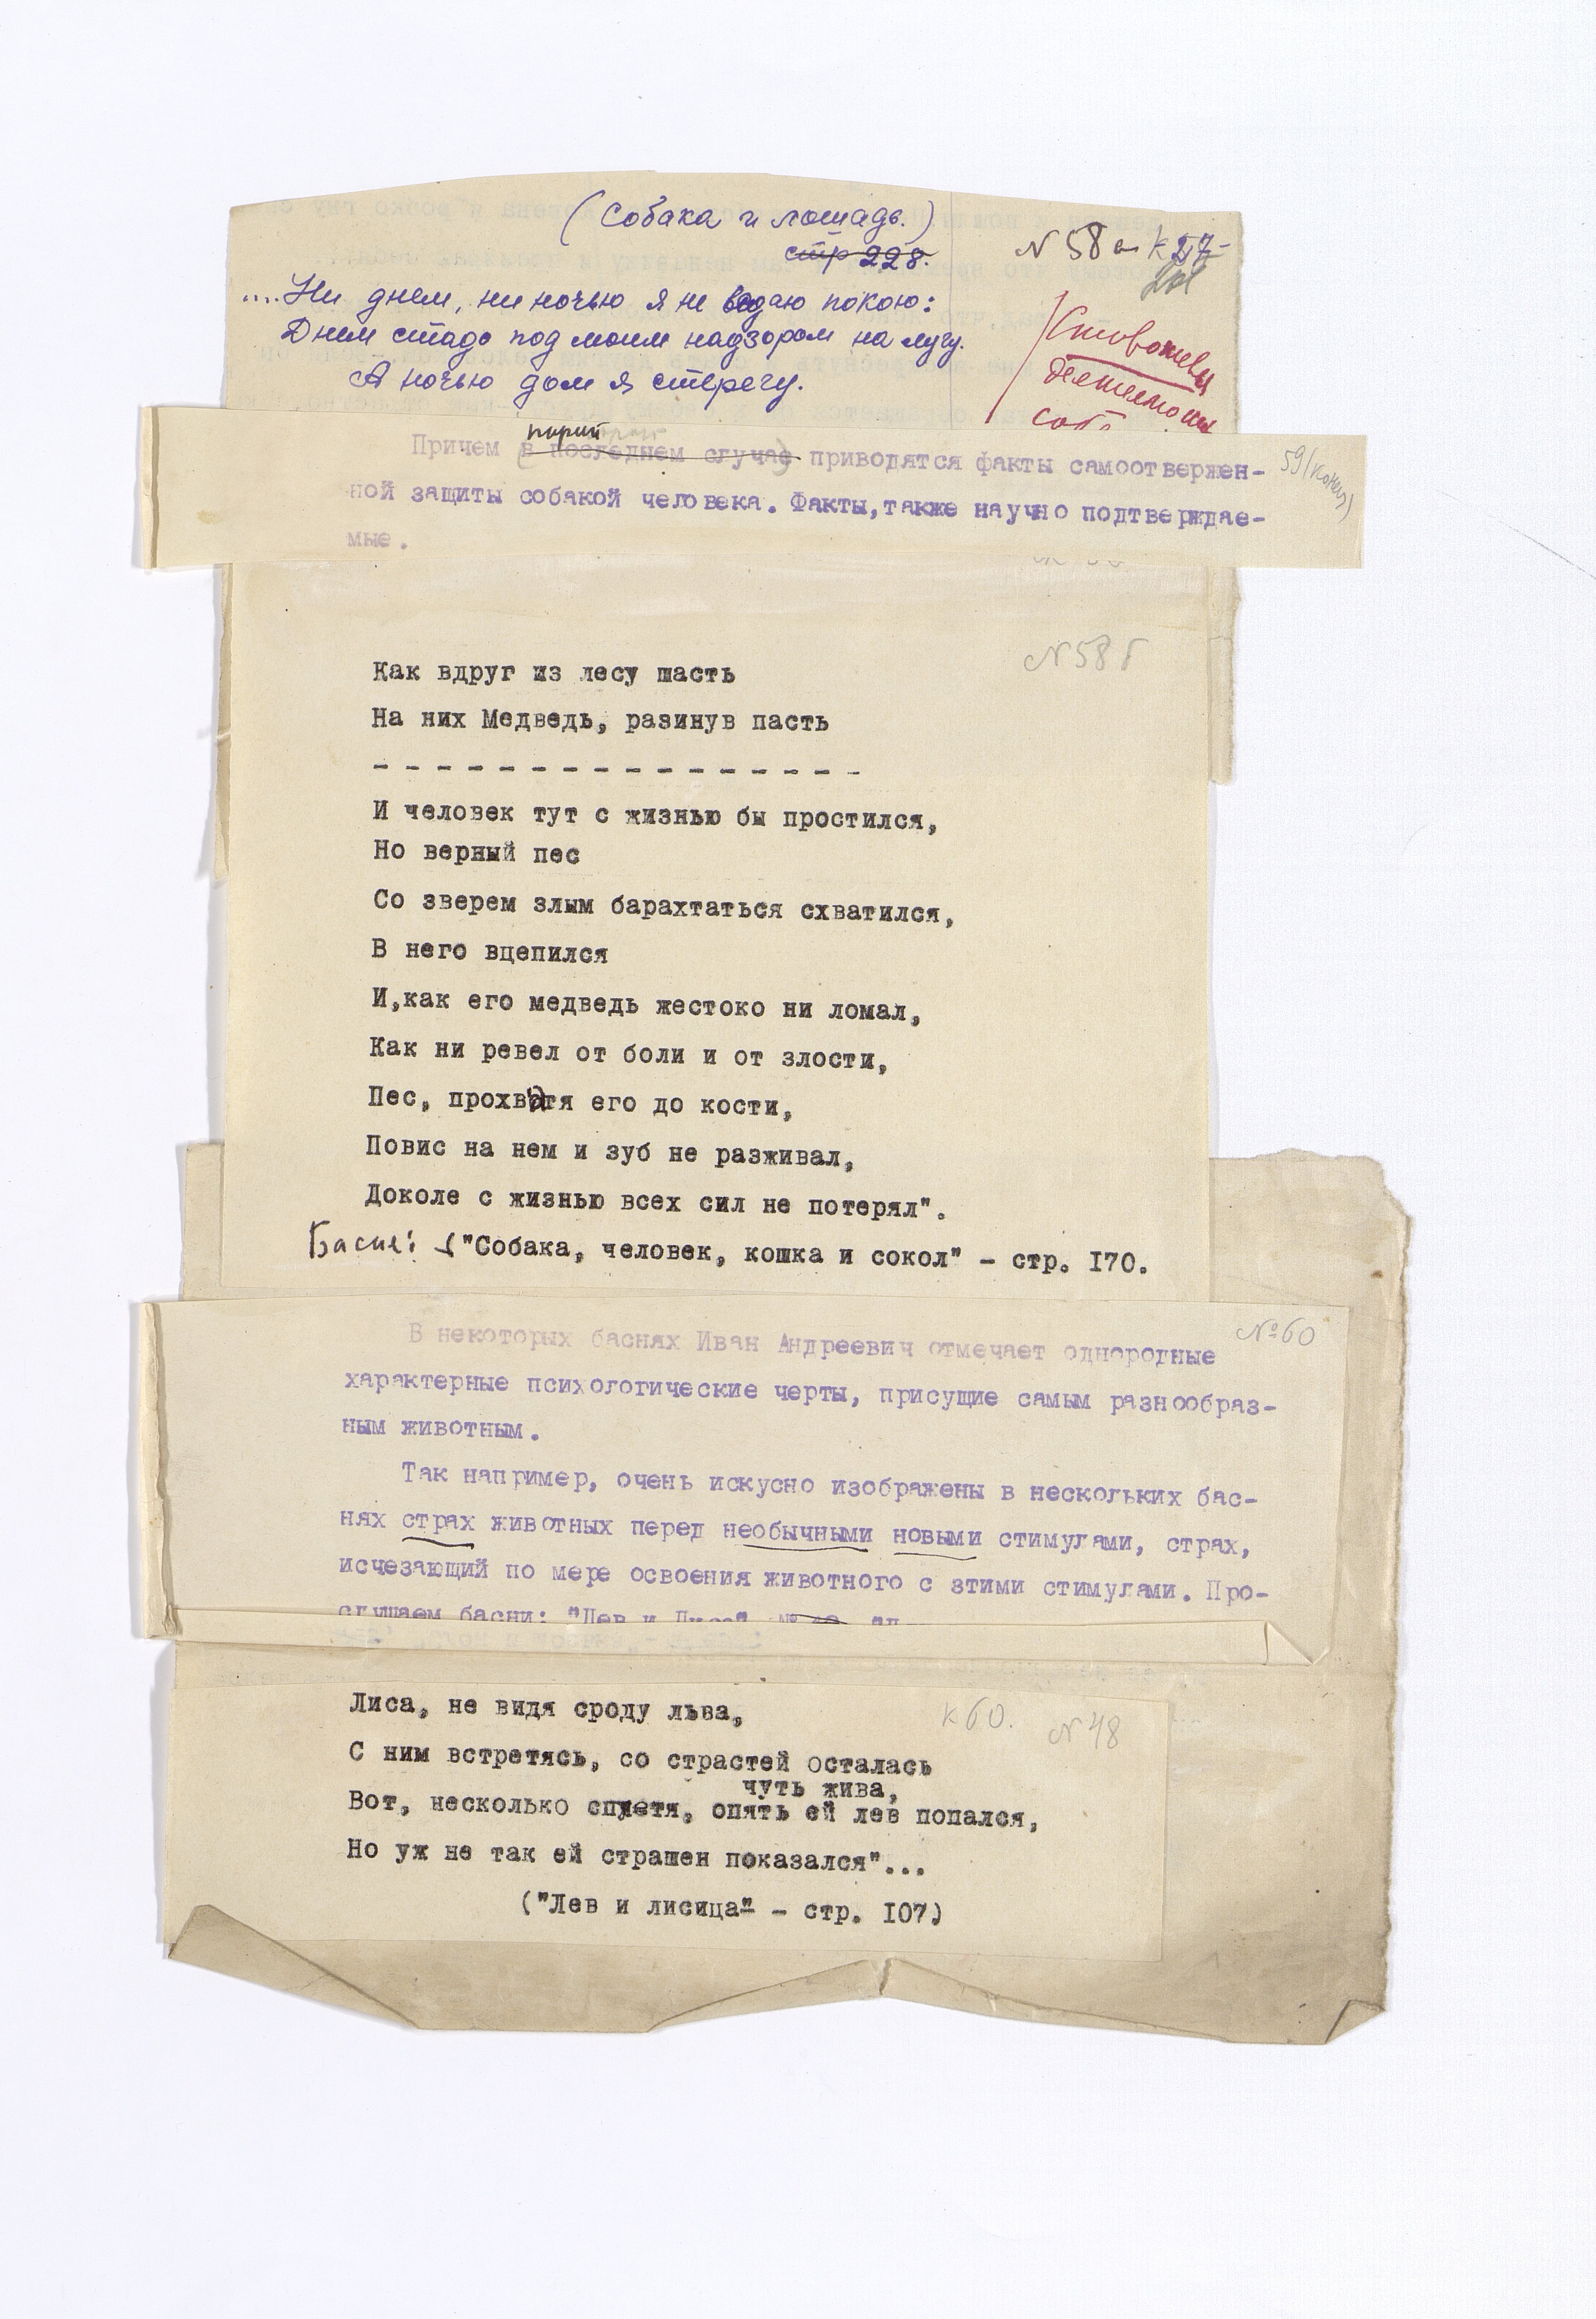 (Собака и лошадь.)
стр 228.
N 58 а к 57
....Ни днем, ни ночью я не ведаю покою:
Днем стадо под моим надзором на лугу.
А ночью дом я стерегу.
деятельности
соб
Причем порой в последнем случае приводятся факты самоотвержен-
59 (конец)
ной защиты собакой человека. Факты,также научно подтверждае-
мые.
N 58 б
Как вдруг из лесу шасть
На них Медведь, разинув пасть
- - - - - - - - - - - - - - - -
И человек тут с жизнью бы простился,
Но верный пес
Со зверем злым барахтаться схватился,
В него вцепился
И,как его медведь жестоко ни ломал,
Как ни ревел от боли и от злости,
Пес, прохватя его до кости,
Повис на нем и зуб не разживал,
Доколе с жизнью всех сил не потерял".
Басня: ("Собака, человек, кошка и сокол" - стр. I70.
№60
В некоторых баснях Иван Андреевич отмечает однородные
характерные психологические черты, присущие самым разнообраз-
ным животным.
Так например, очень искусно изображены в нескольких бас-
нях страх животных перед необычными новыми стимулами, страх,
исчезающий по мере освоения животного с этими стимулами. Про-
слушаем басни: "Лев и Лиса"
Лиса, не видя сроду льва,
к 60. N 48
С ним встретясь, со страстей осталась
чуть жива,
Вот, несколько спустя, опять ей лев попался,
Но уж не так ей страшен показался"...
("Лев и лисица" - стр. I07)